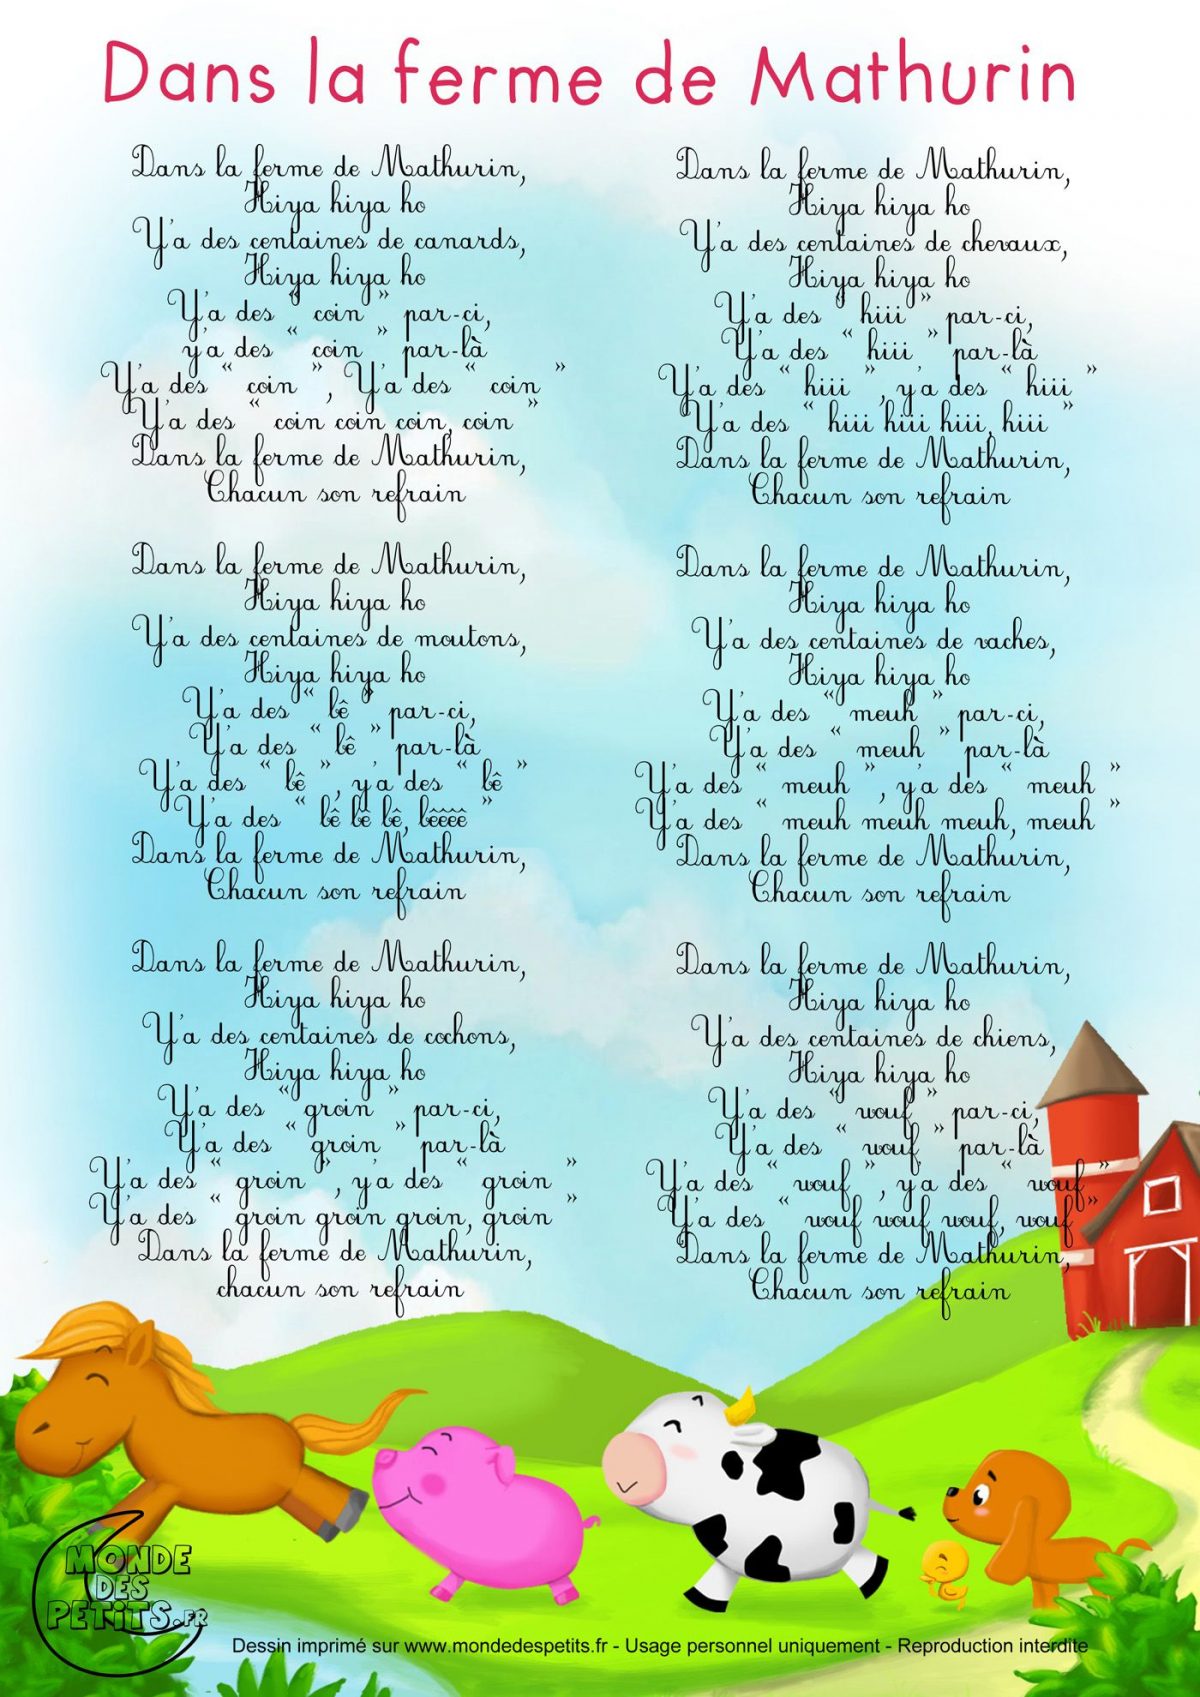 Dans la ferme de Mathurin
Dans la ferme de Mathurin,
Hiya hiya ho
Y'a des centaines de canards,
Hiya hiya ho
Y'a des " coin " par-ci,
y'a des " coin " par-là
Y'a des " coin ", Y'a des " coin "
Y'a des " coin coin coin, coin "
Dans la ferme de Mathurin,
Chacun son refrain
Dans la ferme de Mathurin,
Hiya hiya ho
Y'a des centaines de moutons,
Hiya hiya ho
Y'a des " bê " par-ci,
Y'a des " bê " par-là
Y'a des " bê ", y'a des " bê "
Y'a des " bê bê bê, bêêêê "
Dans la ferme de Mathurin,
Chacun son refrain
Dans la ferme de Mathurin,
Hiya hiya ho
Y'a des centaines de cochons,
Hiya hiya ho
Y'a des "groin " par-ci,
Y'a des " groin " par-là
Y'a des " groin ", y'a des " groin "
Y'a des " groin groin groin, groin "
Dans la ferme de Mathurin,
chacun son refrain
Dans la ferme de Mathurin,
Hiya hiya ho
Y'a des centaines de chevaux,
Hiya hiya ho
Y'a des " hiii " par-ci,
Y'a des " hiii " par-là
Y'a des " hiii ", y'a des " hiii "
Y'a des " hiii hiii hiii, hiii "
Dans la ferme de Mathurin,
Chacun son refrain
Dans la ferme de Mathurin,
Hiya hiya ho
Y'a des centaines de vaches,
Hiya hiya ho
Y'a des " meuh " par-ci,
Y'a des " meuh " par-là
Y'a des " meuh ", y'a des " meuh "
Y'a des " meuh meuh meuh, meuh "
Dans la ferme de Mathurin,
Chacun son refrain
Dans la ferme de Mathurin,
Hiya hiya ho
Y'a des centaines de chiens,
Hiya hiya ho
Y'a des " wouf " par-ci,
Y'a des " wouf " par-là
Y'a des "wouf ", y'a des " wouf "
Y'a des " wouf wouf wouf, wouf "
Dans la ferme de Mathurin,
Chacun son refrain
MONDE
DES
PETITS.FR
Dessin imprimé sur www.mondedespetits.fr - Usage personnel uniquement - Reproduction interdite